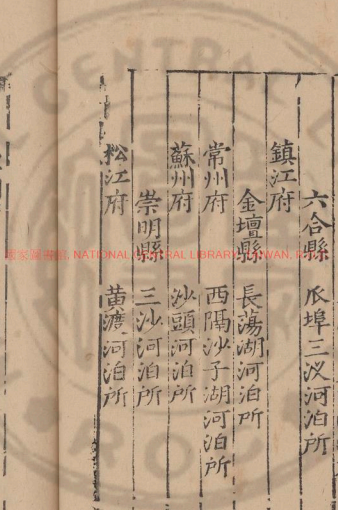 六合縣　瓜埠三汊河泊所
鎮江府
金壇縣　長蕩湖河泊所
常州府　西隔沙子湖河泊所
蘇州府　沙頭河泊所
崇明縣　三沙河泊所
松江府　黃瀍河泊所
NATIONAL CENTRAL LIBRARY, TAIWAN, R.O.C
CENTRAL